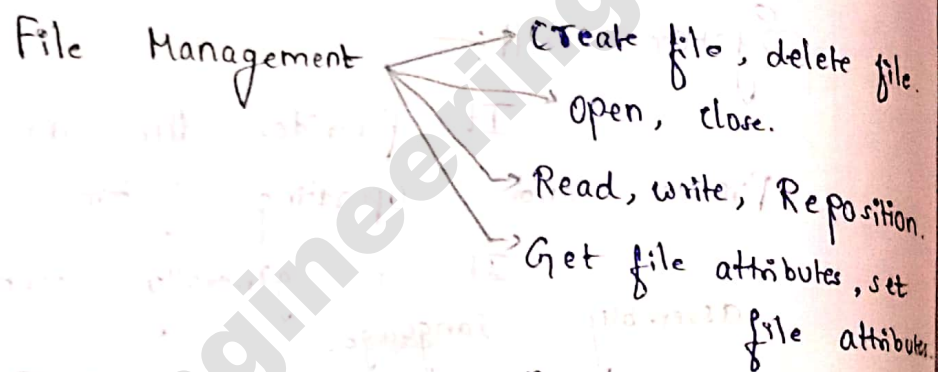 File Management
Create file, delete file.
open, close.
Read, write, Reposition.
Get file attributes, set
file attributes.
gineering